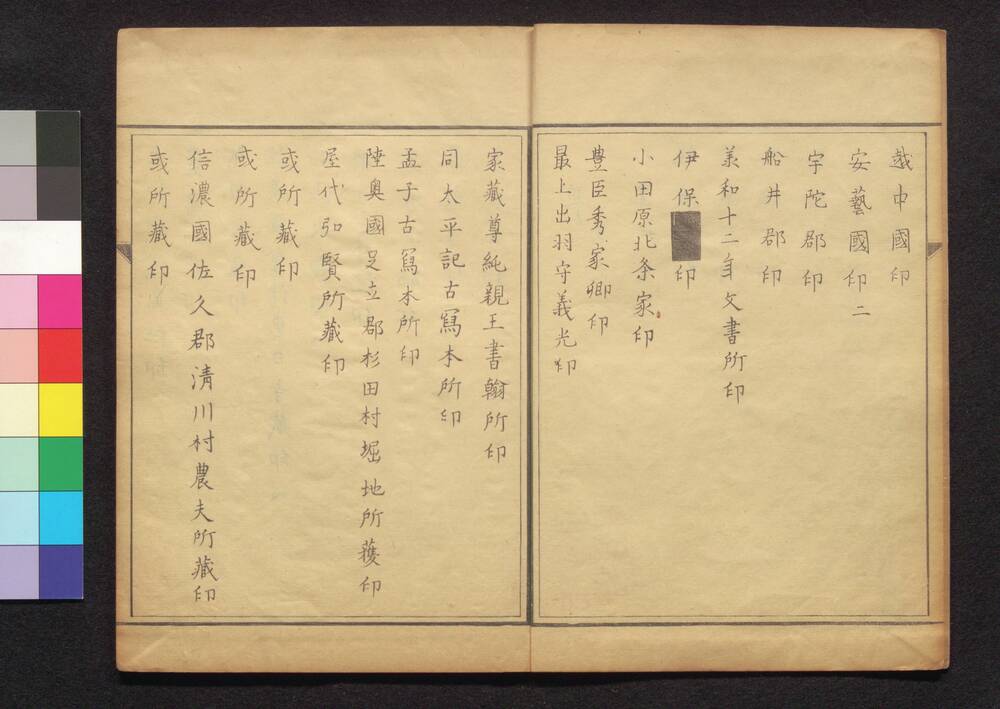 越中國印
安藝國印二
宇陀郡印
船井郡印
義和十二年文書所印
伊保■印
小田原北条家印
豊臣秀家卿印
最上出羽守義光印
家藏尊純親王書翰所印
同太平記古寫本所印
孟子古寫本所印
陸奥國足立郡杉田村堀地所獲印
屋代弘賢所藏印
或所藏印
或所藏印
信濃國佐久郡清川村農夫所藏印
或所藏印